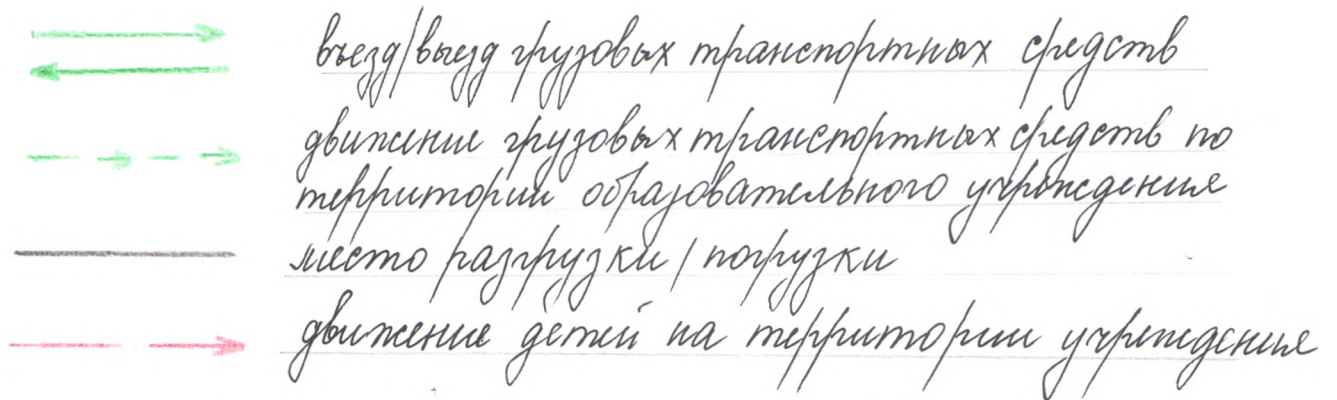 въезд/выезд грузовых транспортных средств
движение грузовых транспортных средств по
территории образовательного учреждения
место разгрузки / погрузки
движение детей на территории учреждения